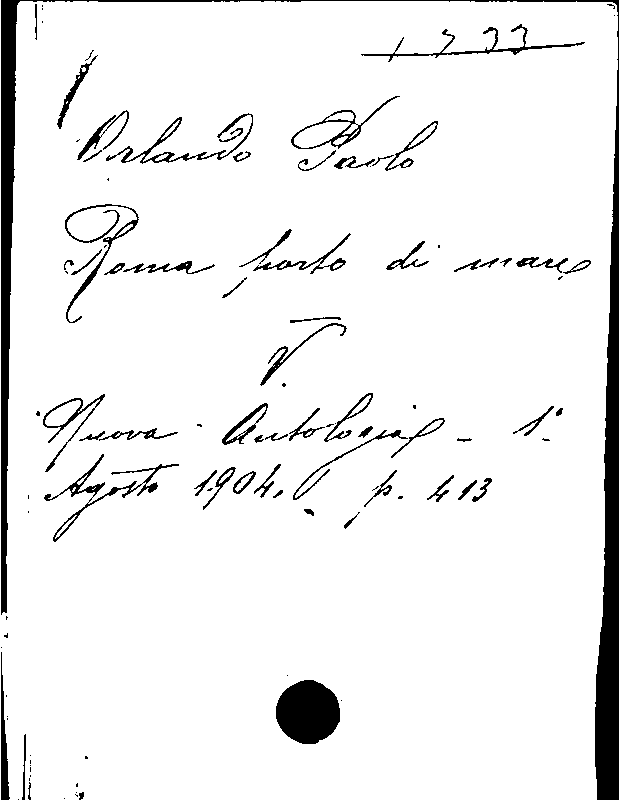 Orlando Paolo
Roma porto di mare
V.
Nuova Antologia - 1°
Agosto 1904. p. 413